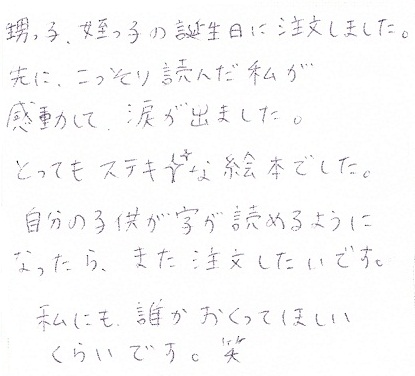 甥っ子、姪っ子の誕生日に注文しました。
先に、こっそり読んだ私が
感動して、涙が出ました。
とってもステキな絵本でした。
自分の子供が字が読めるように
なったら、また注文したいです。
私にも、誰かおくってほしい
くらいです。笑